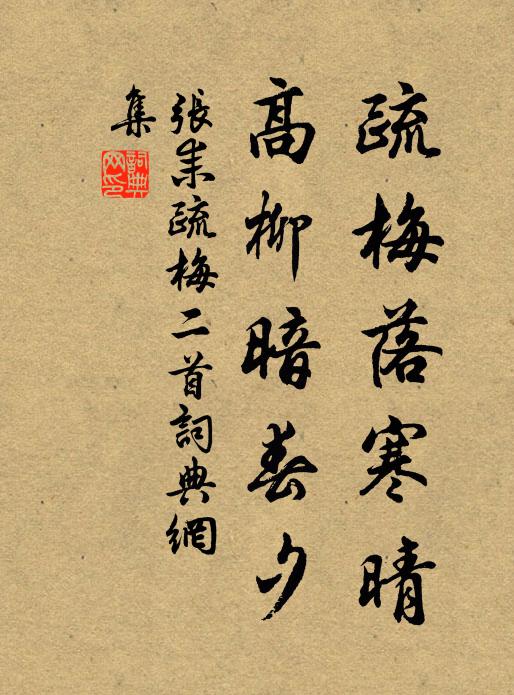 疏梅落寒晴
高柳暗春夕
張耒疏梅二首詞典網
集
詞典
网印